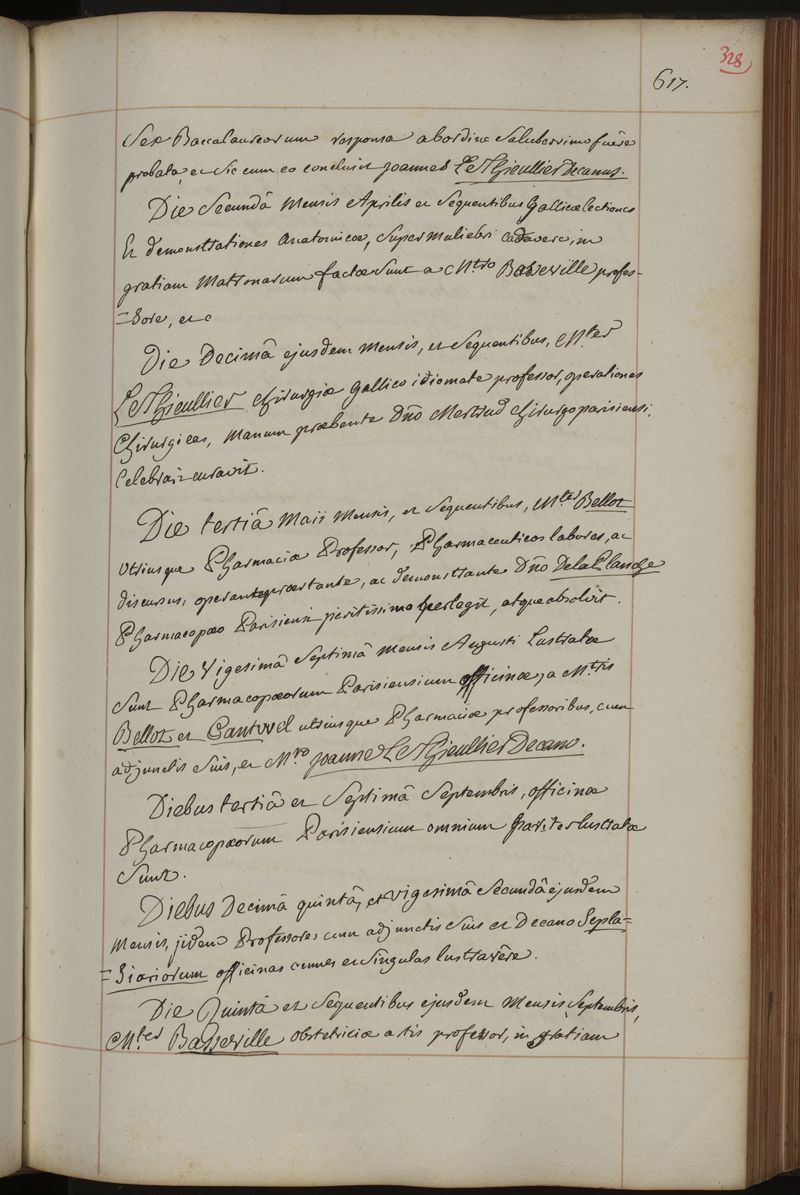 328
617.
Sex Baccalaureorum responsa ab ordine Saluberrimo fuêre
probata, et sic cum eo conclusit joannes Le Thieullier Decanus.
Die Secundâ Mensis Aprilis et Sequentibus Gallicæ lectiones
Et demonstrationes anatomicæ, super muliebri cadavere, in
gratiam Matronarum factæ sunt a Mtro Basseville profes-
=sore, et c
Die Decimâ ejusdem mensis, et sequentibus, Mter
Le Thieullier Chirurgiæ Gallico idiomate professor, operationes
Chirurgicas, manum præbente Dño Mertrud Chirurgo parisiensi,
Celebrari curavit.
Die tertiâ Maii Mensis, et sequentibus, Mter Bellot
Utriusque Pharmaciæ Professor, Pharmaceuticos labores, ac
discursus, operamque præstante, ac demonstrante Dño De la Planche
Pharmacopæo Parisiensi peritissimo perlegit, atque absolvit.
Die Vigesimâ Septimâ mensis Augusti Lustratæ
Sunt Pharmacopæorum Parisiensium officinæ, a Mtris
Bellot et Cantwel utriusque Pharmaciæ professoribus, cum
adjunctis suis, et Mro joanne Le Thieullier Decano.
Diebus tertiâ et Septimâ Septembris, officinæ
Pharmacopæorum Parisiensium omnium pariter lustratæ
Sunt.
Diebus Decimâ quintâ, et vigesimâ secundâ ejusdem
Mensis, jidem Professores cum adjunctis suis et Decano Sepla=
=siariorum officinas omnes et singulas lustravêre.
Die Quintâ et sequentibus ejusdem mensis Septembris,
Mter Basseville obstetriciæ artis professor, in gratiam